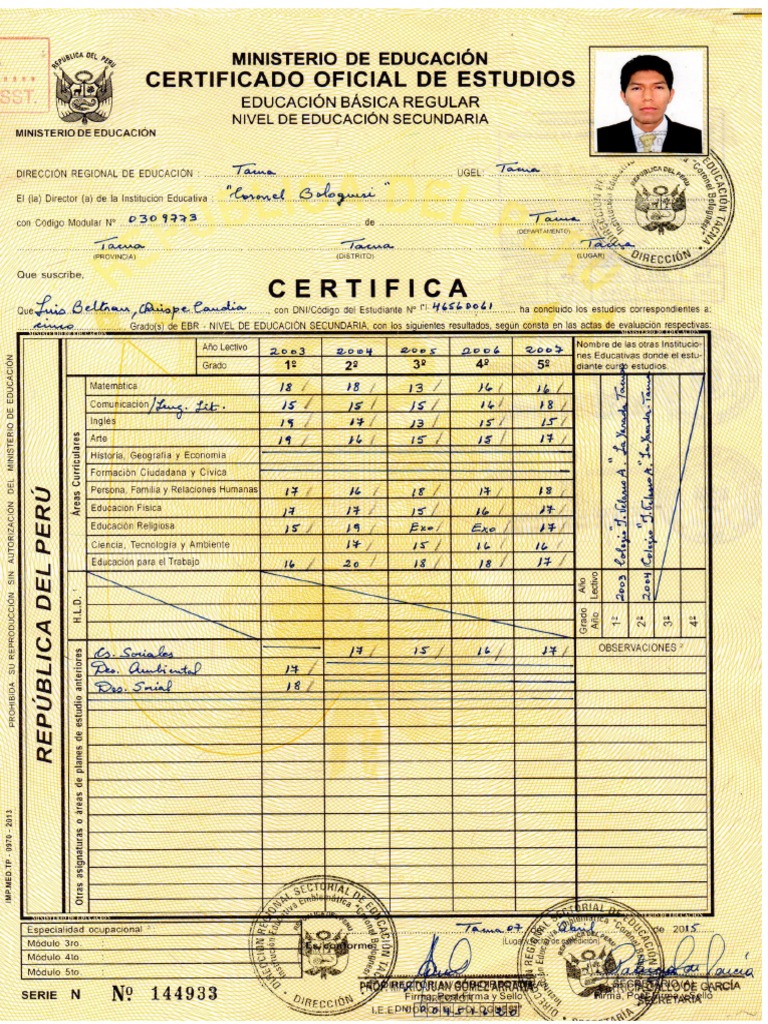 MINISTERIO DE EDUCACIÓN
CERTIFICADO OFICIAL DE ESTUDIOS
EDUCACIÓN BÁSICA REGULAR
NIVEL DE EDUCACIÓN SECUNDARIA
REPÚBLICA DEL PERÚ
MINISTERIO DE EDUCACIÓN
SST.
DIRECCIÓN REGIONAL DE EDUCACIÓN : Tacna UGEL: Tacna
El (la) Director (a) de la Institucion Educativa : "Coronel Bolognesi"
con Código Modular Nº 0309773 de Tacna
(DEPARTAMENTO)
Tacna Tacna Tacna
(PROVINCIA) (DISTRITO) (LUGAR)
DIRECCIÓN
Que suscribe,
CERTIFICA
Que Luis Beltran, Quispe Candia con DNI/Código del Estudiante Nº 46560061 ha concluido los estudios correspondientes a:
cinco Grado(s) de EBR - NIVEL DE EDUCACIÓN SECUNDARIA, con los siguientes resultados, según consta en las actas de evaluación respectivas:
Año Lectivo 2003 2004 2005 2006 2007
Grado 1º 2º 3º 4º 5º
Nombre de las otras Institucio-
nes Educativas donde el estu-
diante curso estudios.
Áreas Curriculares
Matemática 18 / 18 / 13 / 16 / 16 /
Comunicación/Leng. Lit. 15 / 15 / 15 / 16 / 18 /
Inglés 19 / 17 / 13 / 15 / 15 /
Arte 19 / 16 / 15 / 15 / 17 /
Historia, Geografía y Economía
Formación Ciudadana y Cívica
Persona, Familia y Relaciones Humanas 17 / 16 / 18 / 17 / 18 /
Educación Física 17 / 17 / 15 / 16 / 17 /
Educación Religiosa 15 / 19 / Exo / Exo / 17 /
Ciencia, Tecnología y Ambiente 17 / 15 / 16 / 16 /
Educación para el Trabajo 16 / 20 / 18 / 18 / 17 /
H.L.D.
Año Lectivo 2003 2004
Grado Año 1º 2º 3º 4º
Colegio "J. Velasco A." La Yarada Tacna
Colegio "J. Velasco A." La Yarada Tacna
Otras asignaturas o áreas de planes de estudio anteriores
OBSERVACIONES
Cs. Sociales 17 / 15 / 16 / 17 /
Des. Ambiental 17 /
Des. Social 18 /
REPÚBLICA DEL PERÚ
PROHIBIDA SU REPRODUCCIÓN SIN AUTORIZACIÓN DEL MINISTERIO DE EDUCACIÓN
IMP.MED.TP - 0970 - 2013
Especialidad ocupacional
Módulo 3ro.
Módulo 4to.
Módulo 5to.
Es conforme
Tacna 07 de Abril de 2015
(Lugar y fecha de expedición)
DIRECCIÓN
SECRETARIA
Firma, Post Firma y Sello
Firma, Post Firma y Sello
SERIE N Nº 144933